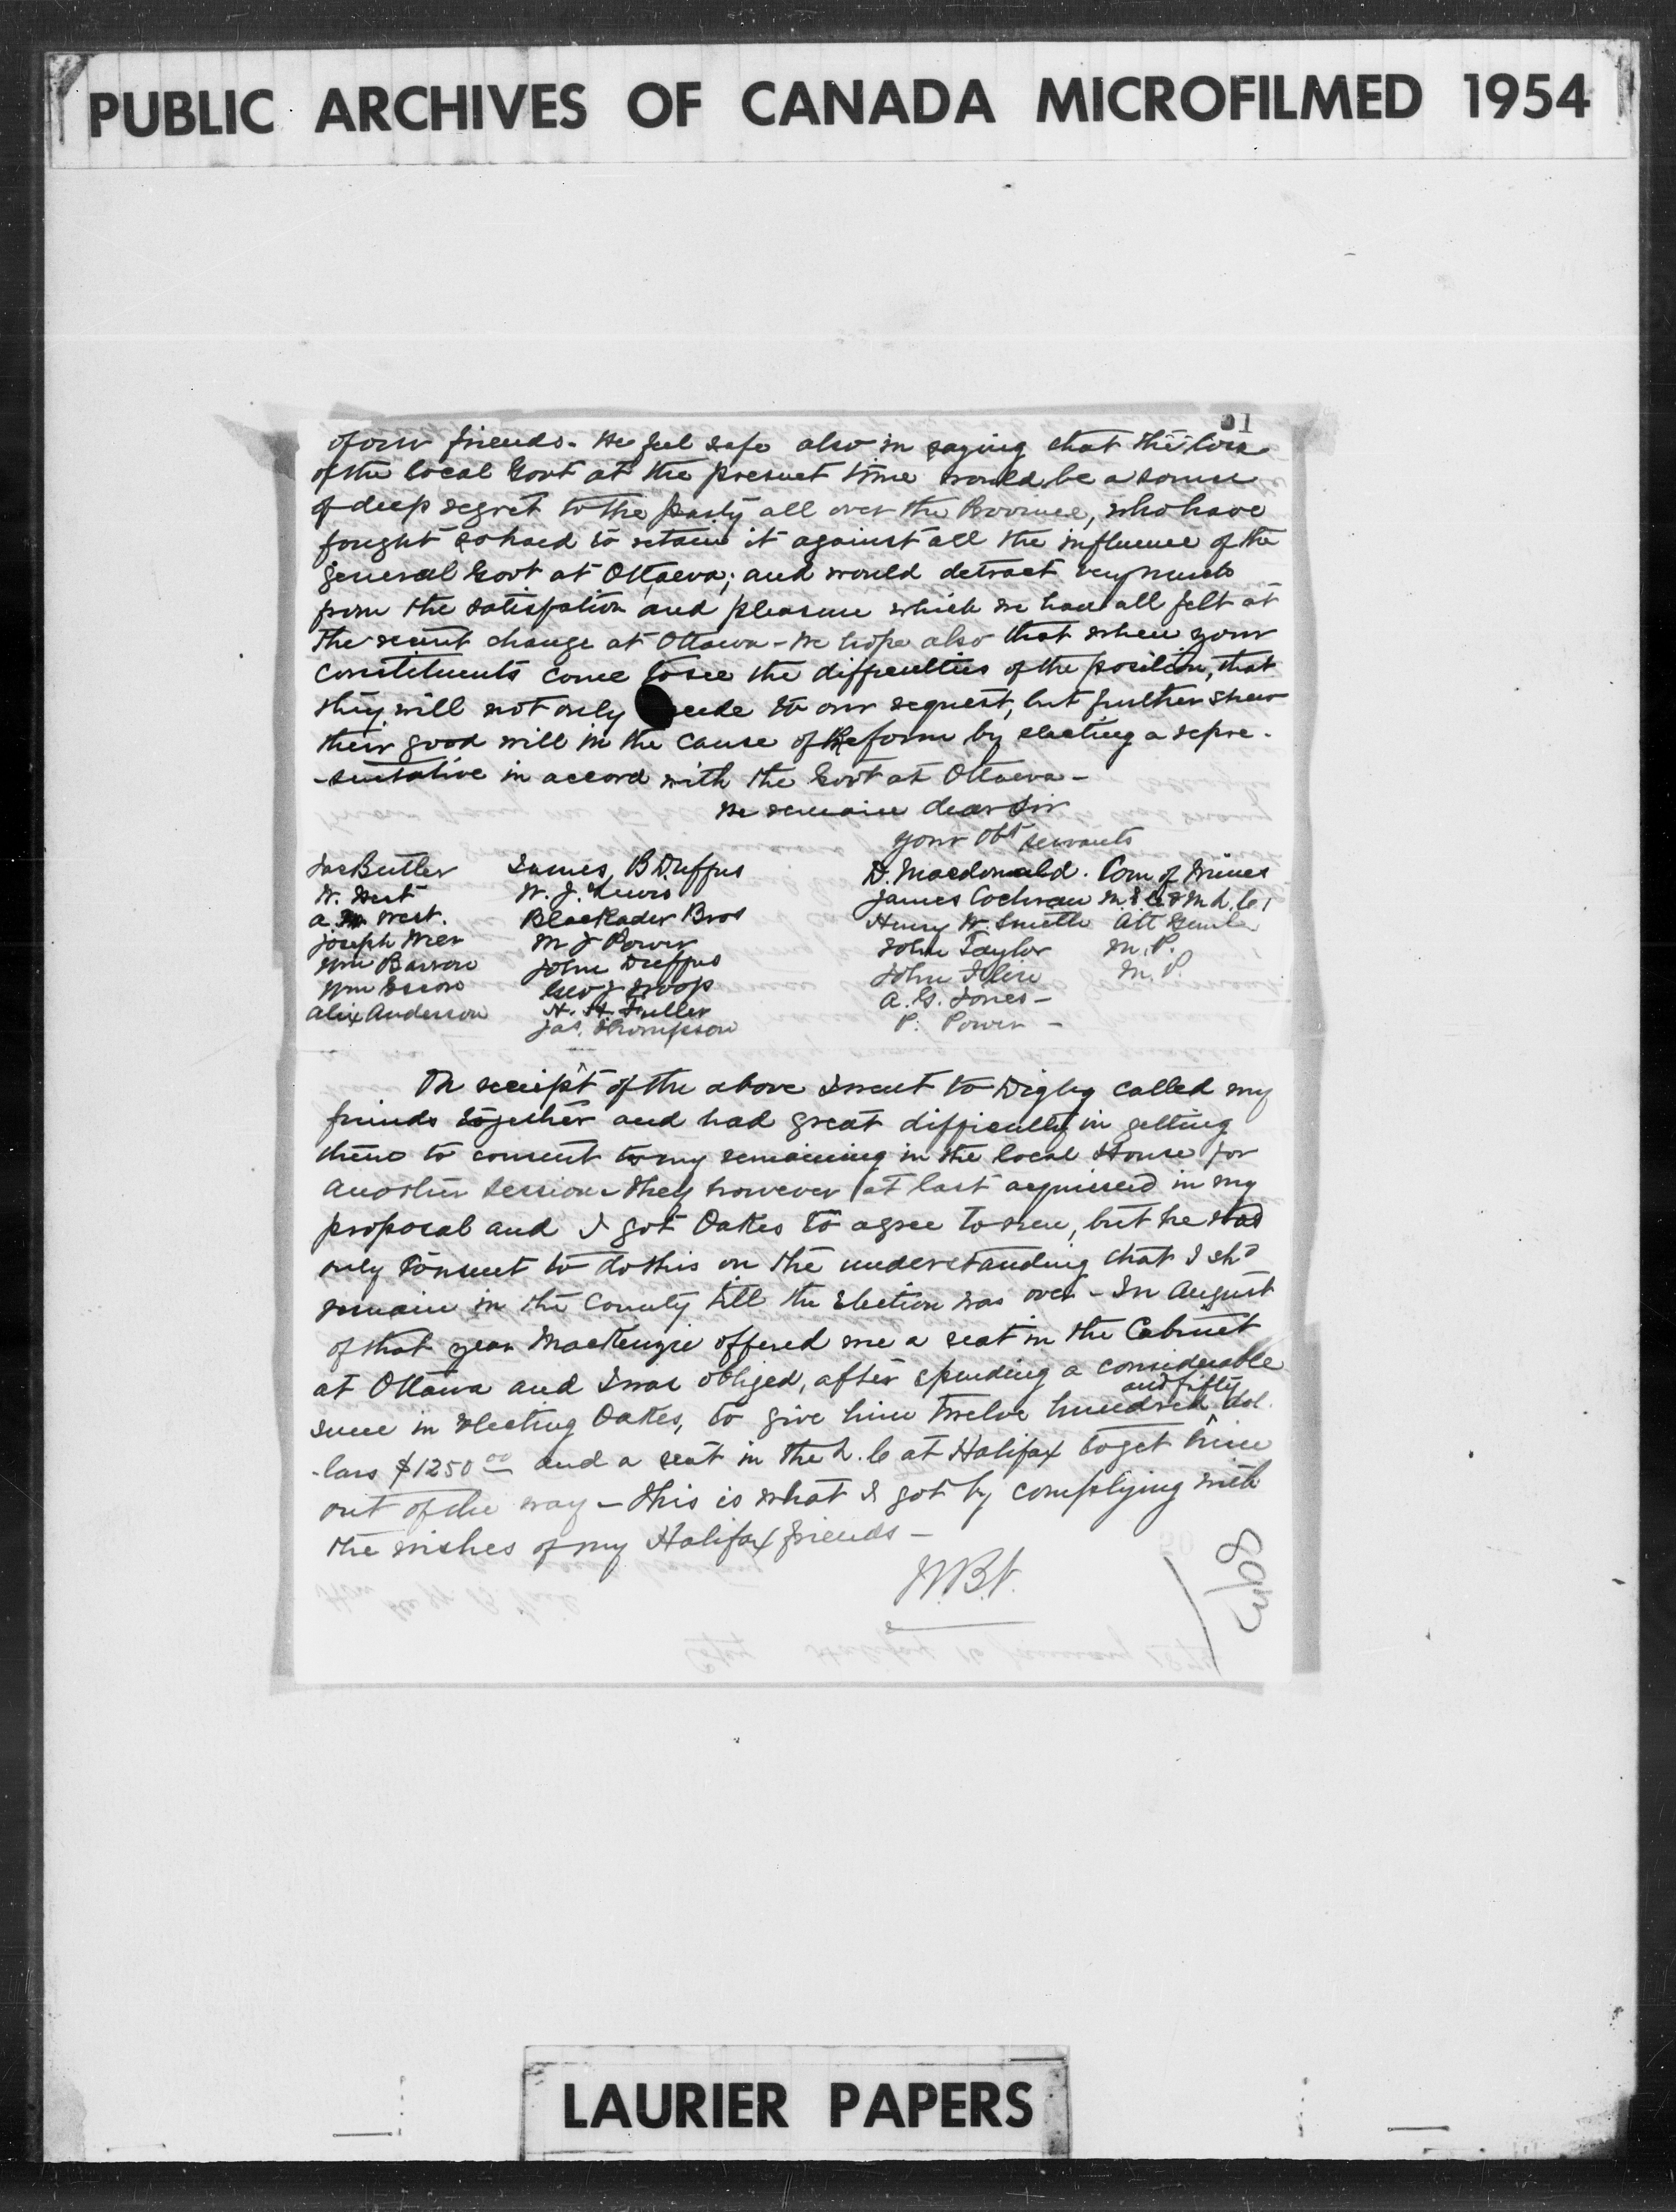 PUBLIC ARCHIVES OF CANADA MICROFILMED 1954
51
of our friends. We feel safe also in saying that the loss
of the local Govt at the present time would be a source
of deep regret to the party all over the Province, who have
fought so hard to retain it against all the influence of the
general Govt at Ottawa; and would detract very much
from the satisfation and pleasure which we have all felt at
the recent change at Ottawa - We hope also that when your
constituents come to see the difficulties of the position, that
they will not only cede to our request, but further shew
their good will in the cause of Reform by electing a repre-
-sentative in accord with the Govt at Ottawa -
We remain dear Sir
your Obt servants
Jas Butler James B Duffus D. Macdonald. Com of Mines
W. West W. J. Lewis James Cochran M.E.C & M.L.C.
A. M West. Blackader Bros Henry W. Smith Att Genl
Joseph Wier M J Power John Taylor M.P.
Wm Barron John Duffus John Flinn M.P.
Wm Esson Geo J Troop A. G. Jones -
Alix Anderson H. H. Fuller P. Power -
Jas. Thompson
On receipt of the above I went to Digby called my
friends together and had great difficulty in getting
them to consent to my remaining in the local House for
another session - They however at last acquiesced in my
proposal and I got Oakes to agree to run, but he wod
only consent to do this on the understanding that I shd
remain in the County till the Election was over - In August
of that year MacKenzie offered me a seat in the Cabinet
at Ottawa and I was obliged, after spending a considerable
sum in electing Oakes, to give him twelve hundred and fifty dol-
-lars $1250 00 and a seat in the L. C at Halifax to get him
out of the way - This is what I got by complying with
the wishes of my Halifax friends -
W.B.V.
8093
LAURIER PAPERS